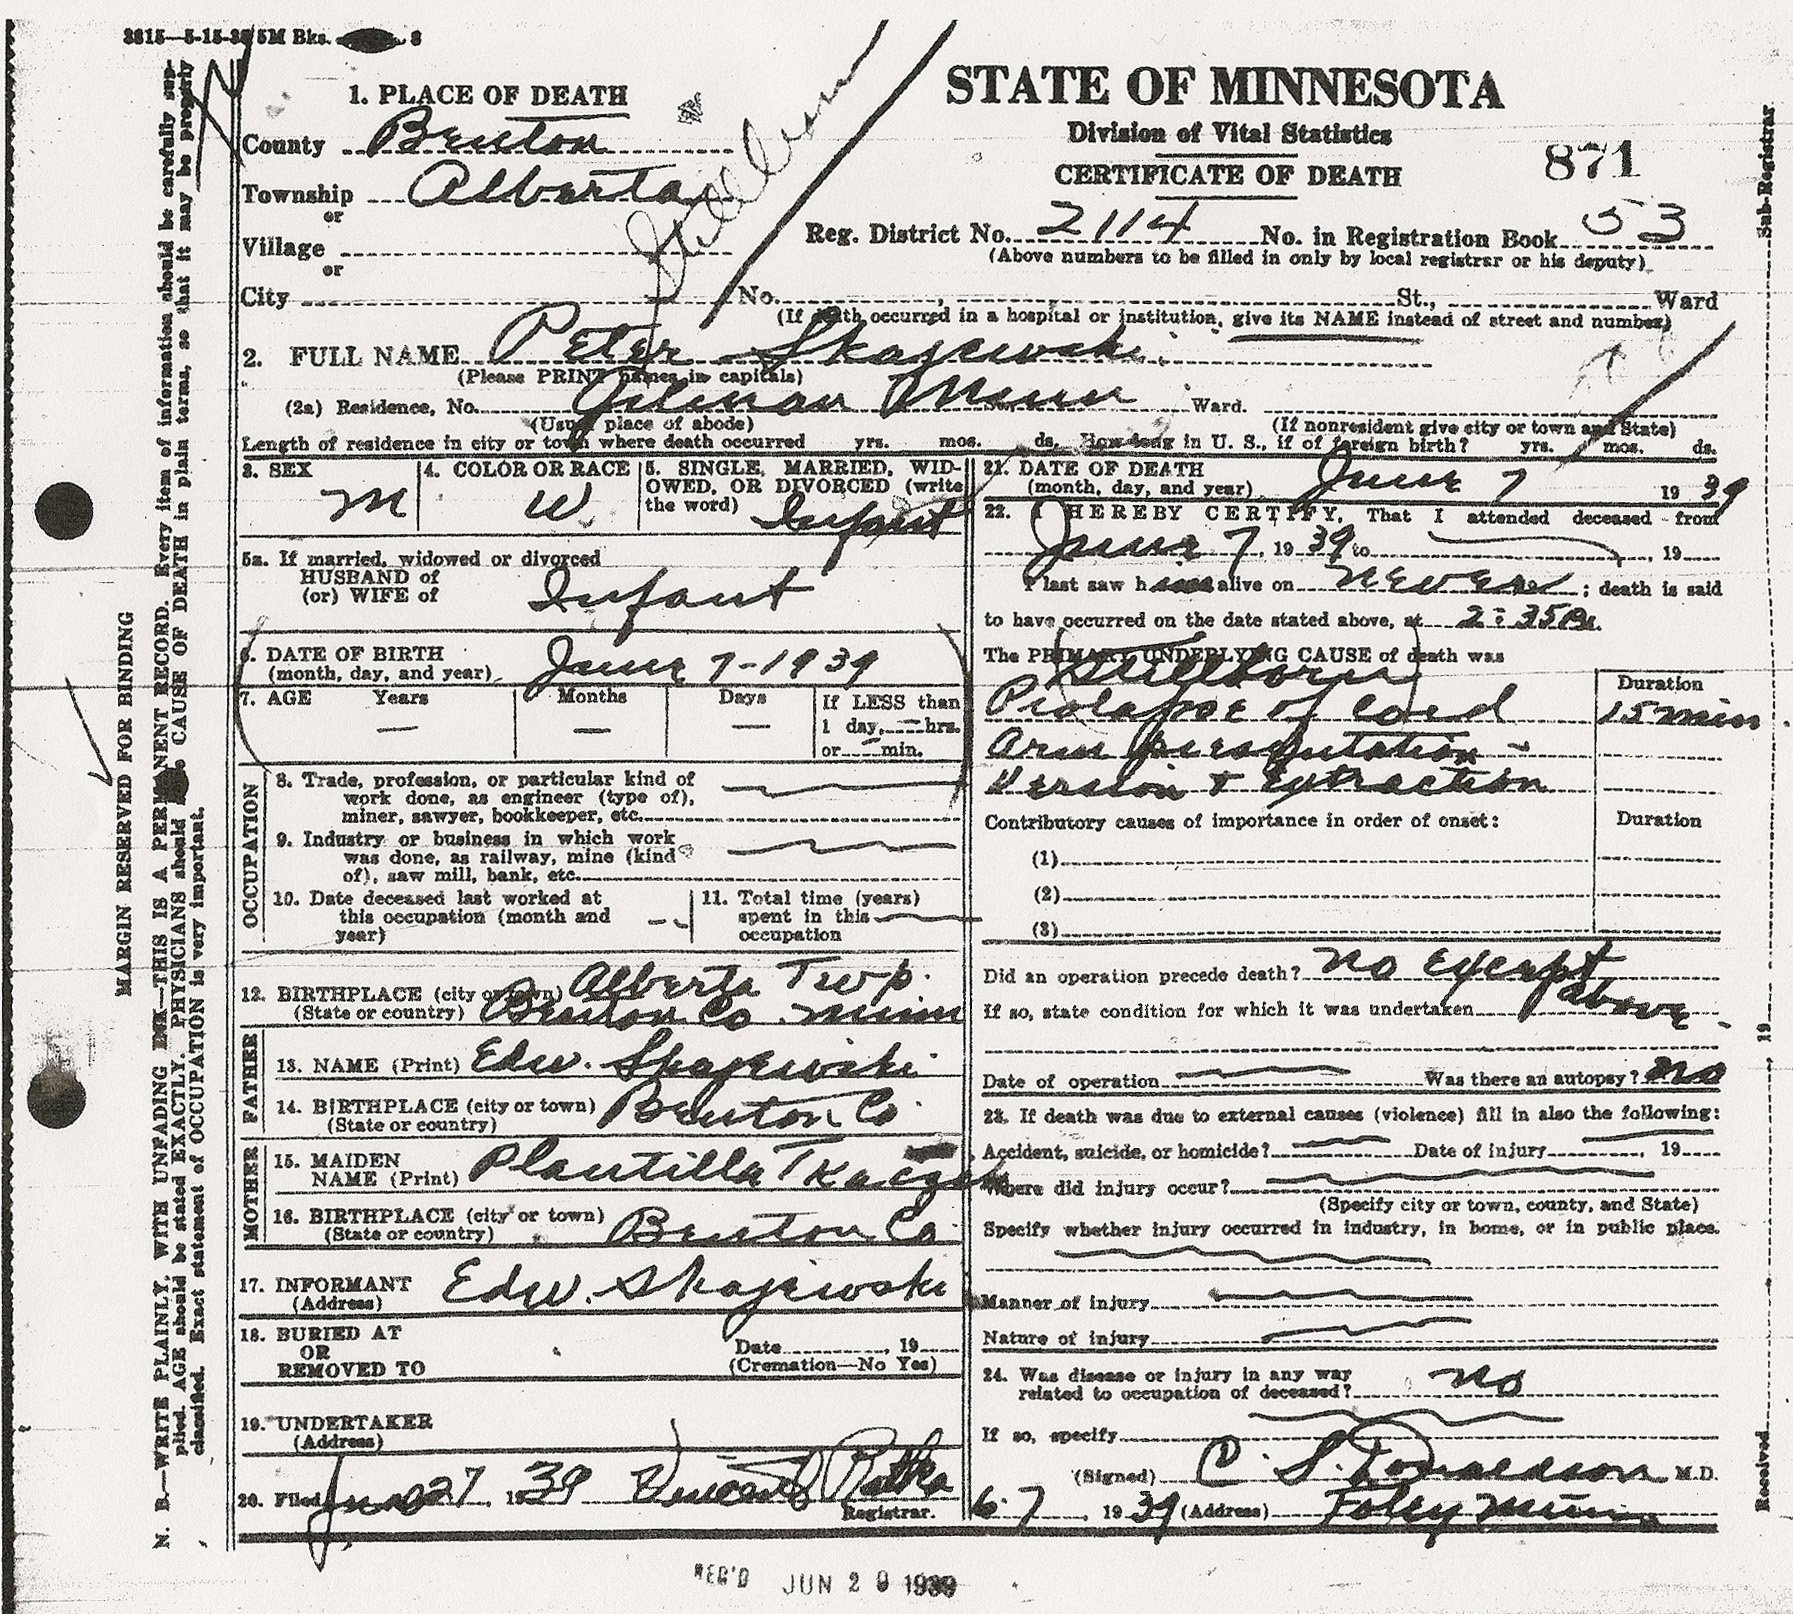 3815—5-15-35 5M Bks. 8
STATE OF MINNESOTA
Division of Vital Statistics
CERTIFICATE OF DEATH
871
Reg. District No. 2114 No. in Registration Book 53
(Above numbers to be filled in only by local registrar or his deputy)
1. PLACE OF DEATH
County Benton
Township Alberta
or
Village
or
City No. , St., Ward
(If death occurred in a hospital or institution, give its NAME instead of street and number)
Stillborn
2. FULL NAME Peter Skajewski
(Please PRINT names in capitals)
(2a) Residence, No. Gilman Minn St., Ward.
(Usual place of abode) (If nonresident give city or town and State)
Length of residence in city or town where death occurred yrs. mos. ds. How long in U. S., if of foreign birth? yrs. mos. ds.
3. SEX M
4. COLOR OR RACE W
5. SINGLE, MARRIED, WID-
OWED, OR DIVORCED (write
the word) Infant
5a. If married, widowed or divorced
HUSBAND of
(or) WIFE of Infant
6. DATE OF BIRTH
(month, day, and year) June 7-1939
7. AGE Years Months Days If LESS than
— — — 1 day, — hrs.
or — min.
OCCUPATION
8. Trade, profession, or particular kind of
work done, as engineer (type of),
miner, sawyer, bookkeeper, etc.
9. Industry or business in which work
was done, as railway, mine (kind
of), saw mill, bank, etc.
10. Date deceased last worked at
this occupation (month and
year)
11. Total time (years)
spent in this
occupation
12. BIRTHPLACE (city or town) Alberta Twp.
(State or country) Benton Co. Minn
FATHER
13. NAME (Print) Edw. Skajewski
14. BIRTHPLACE (city or town) Benton Co.
(State or country)
MOTHER
15. MAIDEN
NAME (Print) Plantilla
16. BIRTHPLACE (city or town) Benton Co
(State or country)
17. INFORMANT Edw. Skajewski
(Address)
18. BURIED AT
OR
REMOVED TO
Date , 19
(Cremation—No Yes)
19. UNDERTAKER
(Address)
20. Filed June 27, 1939 Vincent Rotka
Registrar.
21. DATE OF DEATH
(month, day, and year) June 7 1939
22. I HEREBY CERTIFY, That I attended deceased from
June 7, 1939 to , 19
I last saw him alive on never; death is said
to have occurred on the date stated above, at 2:35 P.m.
The PRIMARY UNDERLYING CAUSE of death was
Stillborn Duration
Prolapse of Cord 15 min.
Arm presentation -
Version & Extraction
Contributory causes of importance in order of onset: Duration
(1)
(2)
(3)
Did an operation precede death? no except
If so, state condition for which it was undertaken above.
Date of operation Was there an autopsy? no
23. If death was due to external causes (violence) fill in also the following:
Accident, suicide, or homicide? Date of injury , 19
Where did injury occur?
(Specify city or town, county, and State)
Specify whether injury occurred in industry, in home, or in public place.
Manner of injury
Nature of injury
24. Was disease or injury in any way
related to occupation of deceased? no
If so, specify
(Signed) C. S. Donaldson M.D.
6-7, 1939 (Address) Foley Minn.
REC'D JUN 29 1939
MARGIN RESERVED FOR BINDING
N. B.—WRITE PLAINLY, WITH UNFADING INK—THIS IS A PERMANENT RECORD. Every item of information should be carefully sup-
plied. AGE should be stated EXACTLY. PHYSICIANS should state CAUSE OF DEATH in plain terms, so that it may be properly
classified. Exact statement of OCCUPATION is very important.
Received 19 Sub-Registrar